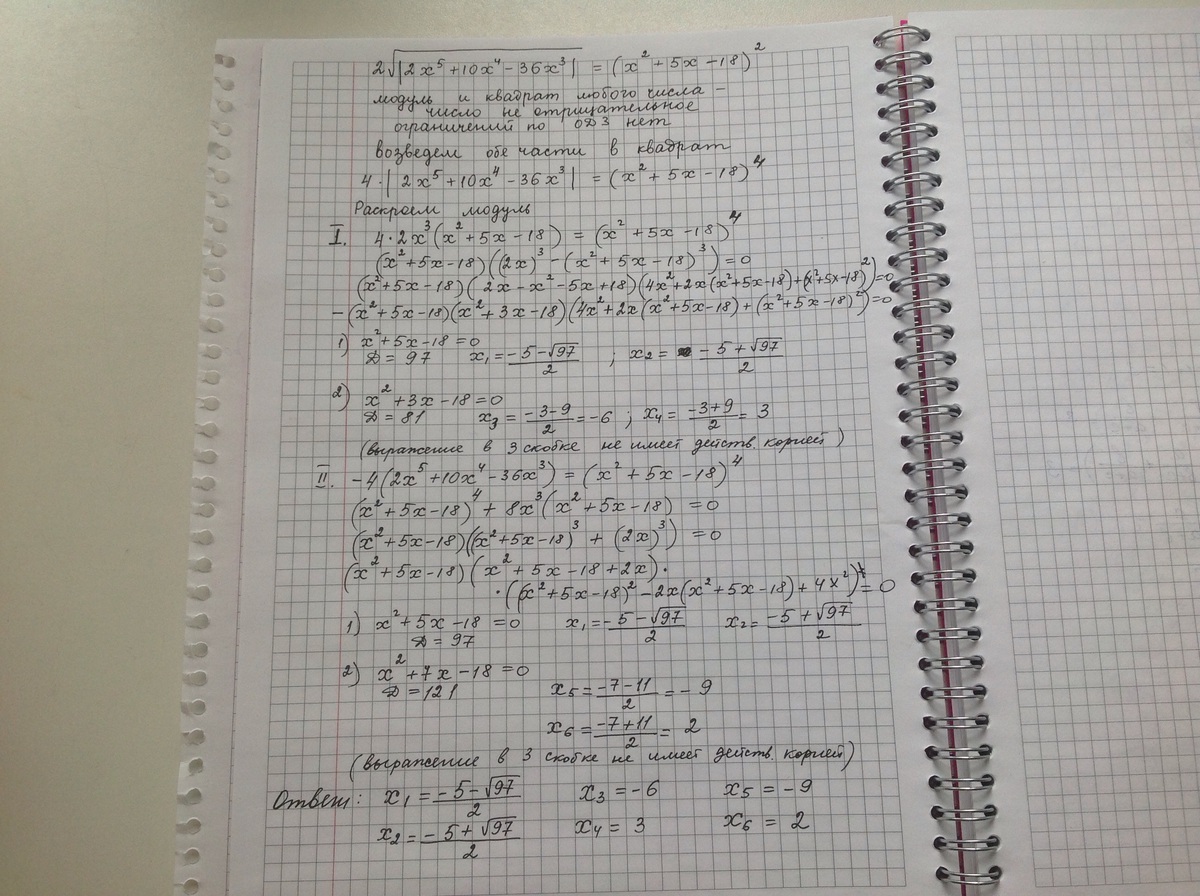 2√|2x⁵+10x⁴-36x³| = (x²+5x-18)²
модуль и квадрат любого числа -
число не отрицательное
ограничений по ОДЗ нет
возведем обе части в квадрат
4·|2x⁵+10x⁴-36x³| = (x²+5x-18)⁴
Раскроем модуль
I. 4·2x³(x²+5x-18) = (x²+5x-18)⁴
(x²+5x-18)((2x)³-(x²+5x-18)³)=0
(x²+5x-18)(2x-x²-5x+18)(4x²+2x(x²+5x-18)+(x²+5x-18)²)=0
-(x²+5x-18)(x²+3x-18)(4x²+2x(x²+5x-18)+(x²+5x-18)²)=0
1) x²+5x-18=0
D = 97 x₁=(-5-√97)/2 ; x₂= (-5+√97)/2
2) x²+3x-18=0
D = 81 x₃ = (-3-9)/2 = -6 ; x₄ = (-3+9)/2 = 3
(выражение в 3 скобке не имеет действ. корней)
II. -4(2x⁵+10x⁴-36x³) = (x²+5x-18)⁴
(x²+5x-18)⁴ + 8x³(x²+5x-18) = 0
(x²+5x-18)((x²+5x-18)³ + (2x)³) = 0
(x²+5x-18)(x²+5x-18+2x)·
·((x²+5x-18)²-2x(x²+5x-18)+4x²) = 0
1) x²+5x-18=0 x₁=(-5-√97)/2 x₂=(-5+√97)/2
D = 97
2) x²+7x-18=0
D = 121 x₅ = (-7-11)/2 = -9
x₆ = (-7+11)/2 = 2
(выражение в 3 скобке не имеет действ. корней)
Ответ: x₁ = (-5-√97)/2 x₃ = -6 x₅ = -9
x₂ = (-5+√97)/2 x₄ = 3 x₆ = 2